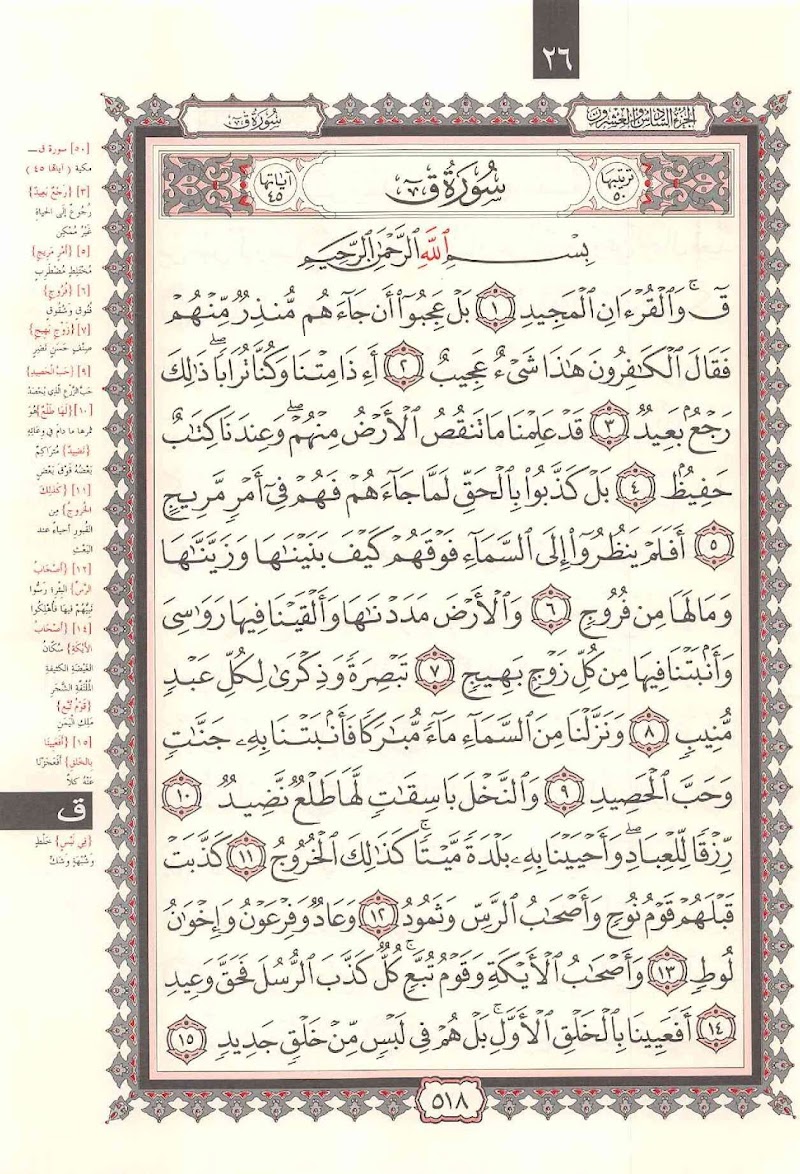 ٢٦
الجزء السادس والعشرون
سورة ق
ترتيبها ٥٠
سُورَةُ ق
آياتها ٤٥
بِسْمِ اللَّهِ الرَّحْمَٰنِ الرَّحِيمِ
قٓ ۚ وَٱلْقُرْءَانِ ٱلْمَجِيدِ ١ بَلْ عَجِبُوٓا۟ أَن جَآءَهُم مُّنذِرٌ مِّنْهُمْ
فَقَالَ ٱلْكَـٰفِرُونَ هَـٰذَا شَىْءٌ عَجِيبٌ ٢ أَءِذَا مِتْنَا وَكُنَّا تُرَابًا ۖ ذَٰلِكَ
رَجْعٌۢ بَعِيدٌ ٣ قَدْ عَلِمْنَا مَا تَنقُصُ ٱلْأَرْضُ مِنْهُمْ ۖ وَعِندَنَا كِتَـٰبٌ
حَفِيظٌۢ ٤ بَلْ كَذَّبُوا۟ بِٱلْحَقِّ لَمَّا جَآءَهُمْ فَهُمْ فِىٓ أَمْرٍ مَّرِيجٍ
٥ أَفَلَمْ يَنظُرُوٓا۟ إِلَى ٱلسَّمَآءِ فَوْقَهُمْ كَيْفَ بَنَيْنَـٰهَا وَزَيَّنَّـٰهَا
وَمَا لَهَا مِن فُرُوجٍ ٦ وَٱلْأَرْضَ مَدَدْنَـٰهَا وَأَلْقَيْنَا فِيهَا رَوَٰسِىَ
وَأَنۢبَتْنَا فِيهَا مِن كُلِّ زَوْجٍۭ بَهِيجٍ ٧ تَبْصِرَةً وَذِكْرَىٰ لِكُلِّ عَبْدٍ
مُّنِيبٍ ٨ وَنَزَّلْنَا مِنَ ٱلسَّمَآءِ مَآءً مُّبَـٰرَكًا فَأَنۢبَتْنَا بِهِۦ جَنَّـٰتٍ
وَحَبَّ ٱلْحَصِيدِ ٩ وَٱلنَّخْلَ بَاسِقَـٰتٍ لَّهَا طَلْعٌ نَّضِيدٌ ١٠
رِّزْقًا لِّلْعِبَادِ ۖ وَأَحْيَيْنَا بِهِۦ بَلْدَةً مَّيْتًا ۚ كَذَٰلِكَ ٱلْخُرُوجُ ١١ كَذَّبَتْ
قَبْلَهُمْ قَوْمُ نُوحٍ وَأَصْحَـٰبُ ٱلرَّسِّ وَثَمُودُ ١٢ وَعَادٌ وَفِرْعَوْنُ وَإِخْوَٰنُ
لُوطٍ ١٣ وَأَصْحَـٰبُ ٱلْأَيْكَةِ وَقَوْمُ تُبَّعٍ ۚ كُلٌّ كَذَّبَ ٱلرُّسُلَ فَحَقَّ وَعِيدِ
١٤ أَفَعَيِينَا بِٱلْخَلْقِ ٱلْأَوَّلِ ۚ بَلْ هُمْ فِى لَبْسٍ مِّنْ خَلْقٍ جَدِيدٍ ١٥
٥١٨
[٥٠] سورة ق ــ
مكية ( آياتها ٤٥ )
[٣] {رَجْعٌ بَعِيدٌ}
رُجُوعٌ إلى الحياةِ
غَيْرُ مُمْكِنٍ
[٥] {أَمْرٍ مَرِيجٍ}
مُخْتَلِطٍ مُضْطَرِبٍ
[٦] {فُرُوجٍ}
فُتُوقٍ وشُقُوقٍ
[٧] {زَوْجٍ بَهِيجٍ}
صِنْفٍ حَسَنٍ نَضِرٍ
[٩] {حَبَّ الْحَصِيدِ}
حَبَّ الزَّرْعِ الَّذِي يُحْصَدُ
[١٠] {لَهَا طَلْعٌ} هُوَ
ثمرها ما دامَ في وِعَائِهِ
{نَضِيدٌ} مُتَرَاكِمٌ
بَعْضُهُ فَوْقَ بَعْضٍ
[١١] {كَذَلِكَ
الْخُرُوجُ} مِن
القُبورِ أحياءً عند
البَعْثِ
[١٢] {أَصْحَابُ
الرَّسِّ} البِئْرِ؛ رَسُّوا
نَبِيَّهُمْ فِيهَا فَأُهْلِكُوا
[١٤] {أَصْحَابُ
الأَيْكَةِ} سُكَّانُ
الغَيْضَةِ الكثيفةِ
المُلْتَفَّةِ الشَّجَرِ
{قَوْمُ تُبَّعٍ}
مَلِكِ الْيَمَنِ
[١٥] {أَفَعَيِينَا
بِالْخَلْقِ} أَفَعَجَزْنَا
عَنْهُ كَلاَّ
ق
{فِي لَبْسٍ} خَلْطٍ
وَشُبْهَةٍ وَشَكٍّ